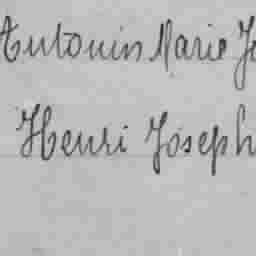 Antonin Marie Jo
Henri Joseph